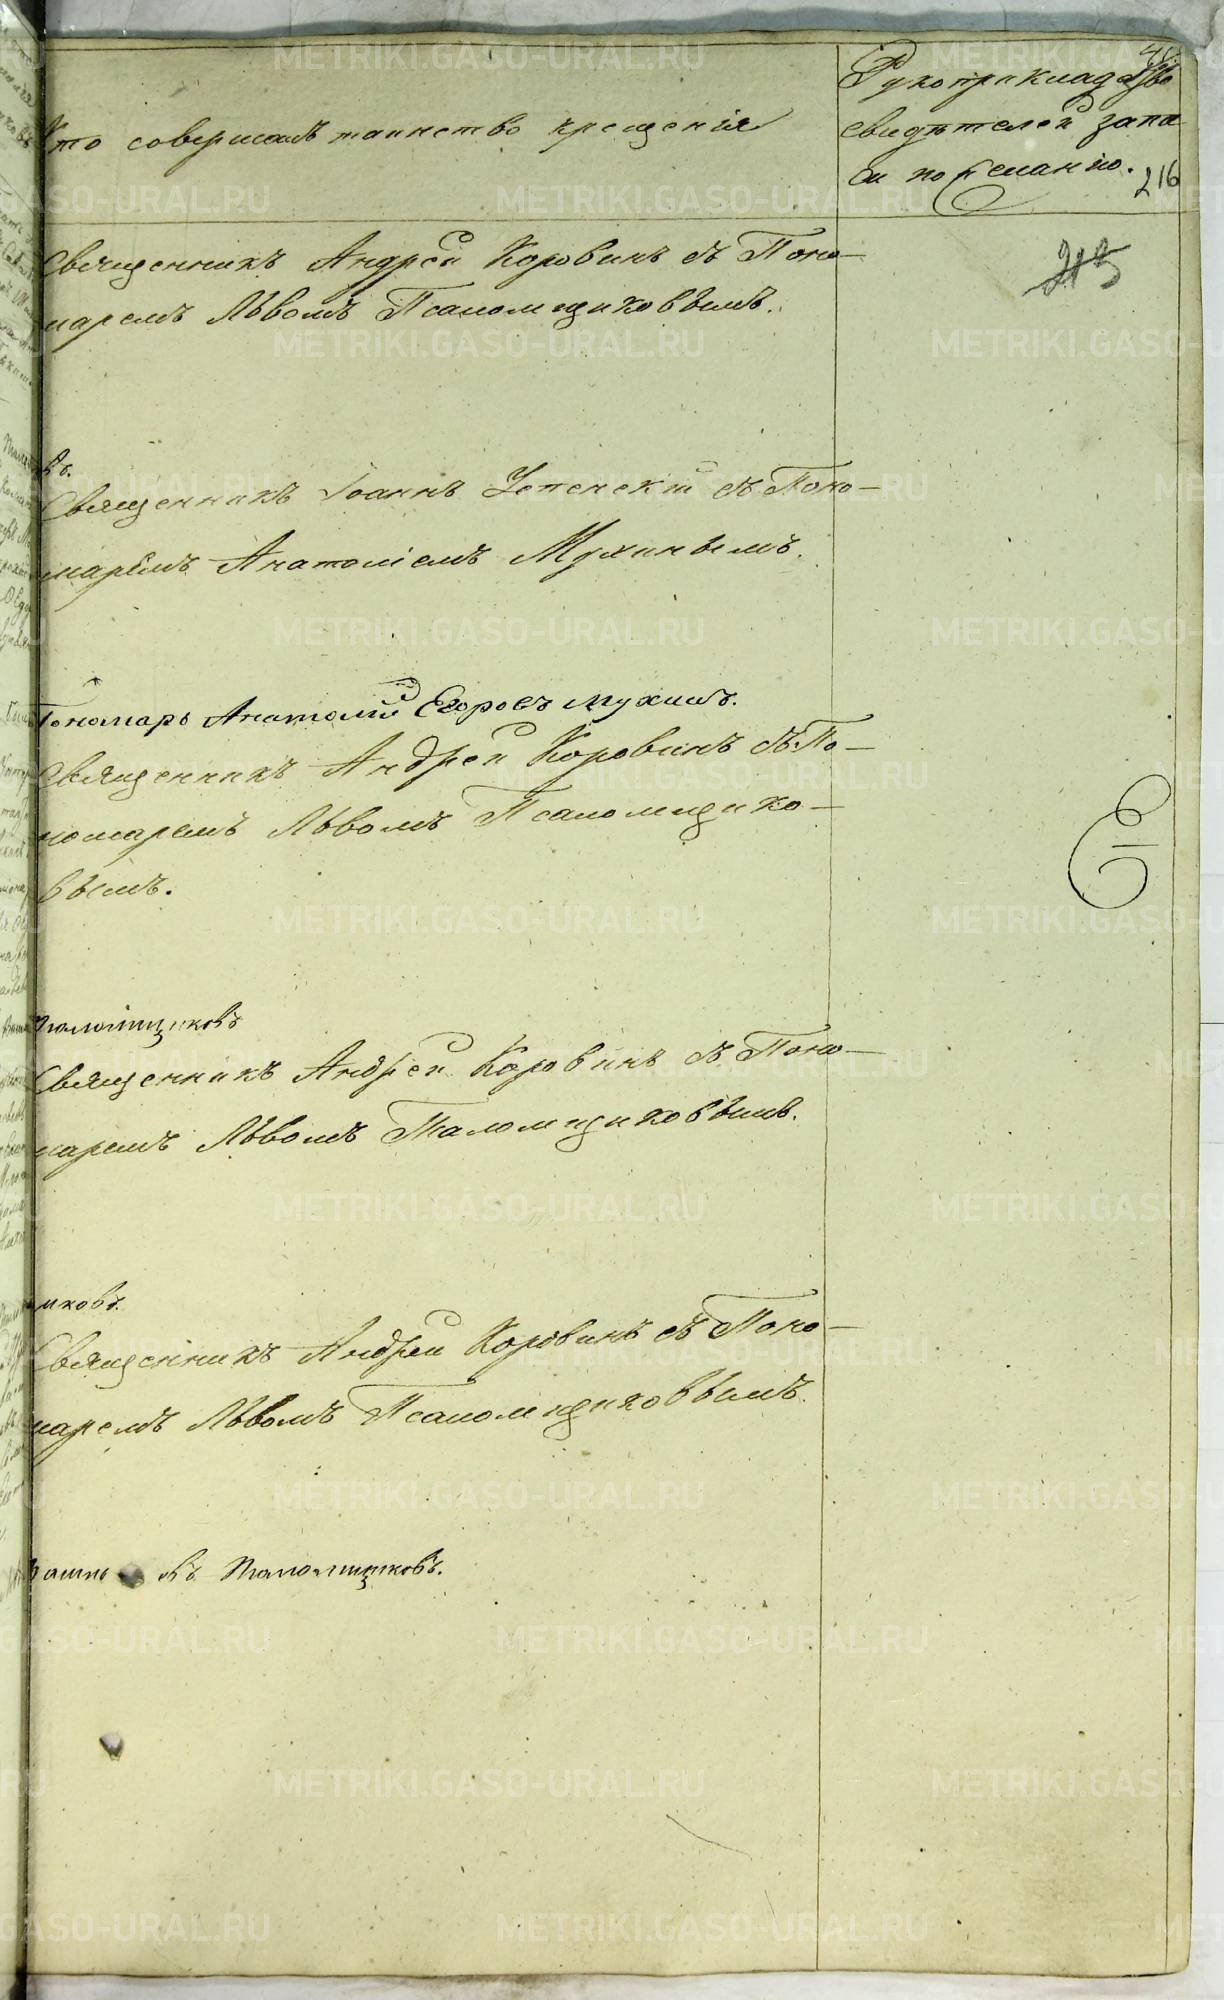 Кто совершалъ таинство крещенія
Рукоприкладство
свидѣтелей запи
си по желанію.
216
215
Священникъ Андрей Коровинъ съ Поно-
маремъ Львомъ Псаломщиковымъ.
въ.
Священникъ Іоаннъ Успенскій съ Поно-
маремъ Анатоліемъ Мухинымъ.
Пономарь Анатолій Егоровъ Мухинъ.
Священникъ Андрей Коровинъ съ По-
номаремъ Львомъ Псаломщико-
вымъ.
Псаломщиковъ
Священникъ Андрей Коровинъ съ Поно-
маремъ Львомъ Псаломщиковымъ.
щиковъ.
Священникъ Андрей Коровинъ съ Поно-
маремъ Львомъ Псаломщиковымъ.
Псаломщиковъ.
METRIKI.GASO-URAL.RU